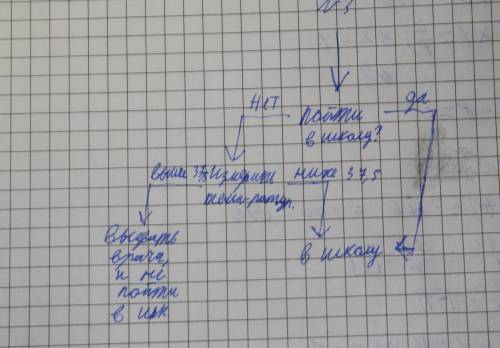 №3
нет
да
пойти
в школу?
выше 37,5
Измерить
ниже 37,5
темп-ратур.
в школу
вызвать
врача,
и не
пойти
в шк